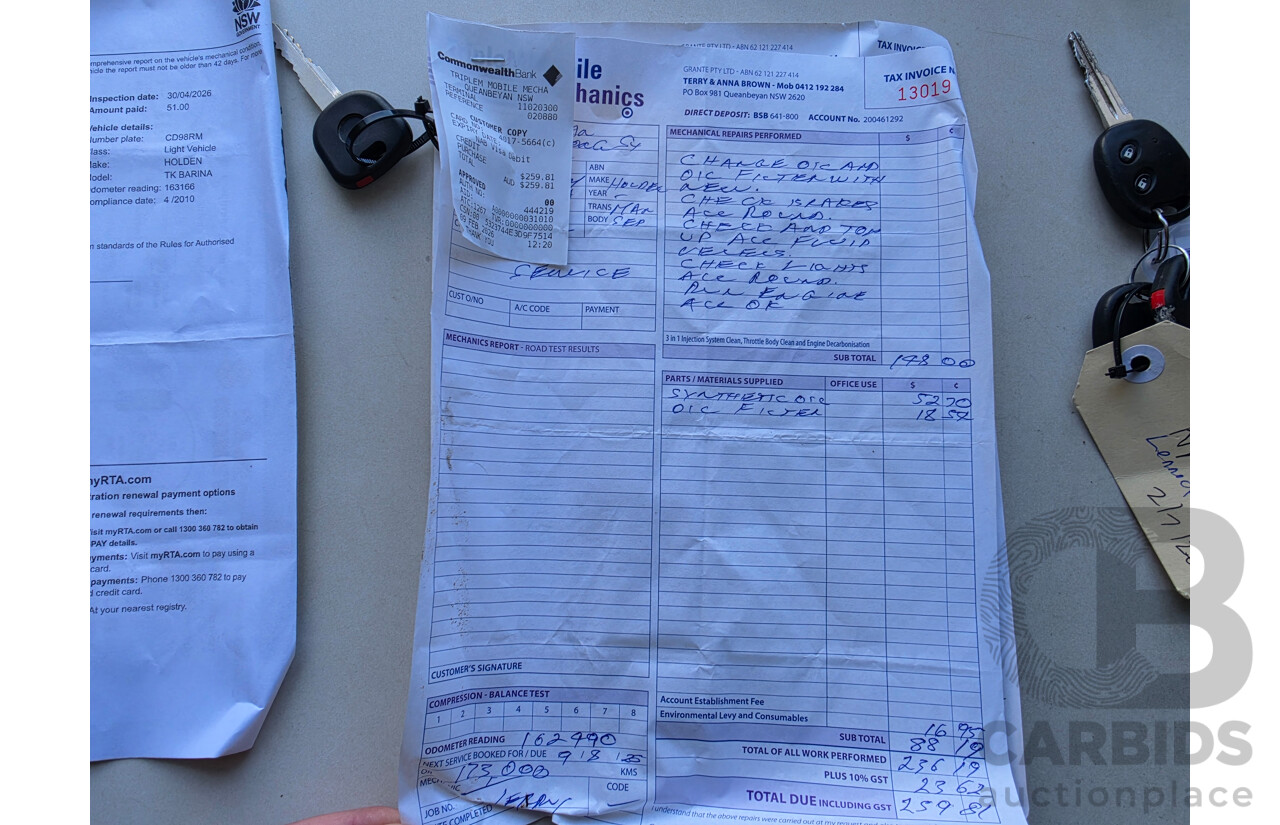 NSW
GOVERNMENT
omprehensive report on the vehicle's mechanical condition
hicle the report must not be older than 42 days. For more
Inspection date: 30/04/2026
Amount paid: 51.00
Vehicle details:
Number plate: CD98RM
lass: Light Vehicle
ake: HOLDEN
odel: TK BARINA
dometer reading: 163166
ompliance date: 4 /2010
n standards of the Rules for Authorised
myRTA.com
ration renewal payment options
renewal requirements then:
isit myRTA.com or call 1300 360 782 to obtain
PAY details.
yments: Visit myRTA.com to pay using a
card.
payments: Phone 1300 360 782 to pay
d credit card.
At your nearest registry.
CommonwealthBank
TRIPLEM MOBILE MECHA
QUEANBEYAN NSW
TERMINAL 11020300
REFERENCE 020880
CUSTOMER COPY
CARD NO: 4017-5664(c)
EXPIRY DATE:
NAB Visa Debit
CREDIT
PURCHASE $259.81
TOTAL AUD $259.81
APPROVED 00
AUTH NO: 444219
09 FEB 2026 12:20
THANK YOU
ile
hanics
GRANTE PTY LTD - ABN 62 121 227 414
TAX INVOIC
GRANTE PTY LTD - ABN 62 121 227 414
TERRY & ANNA BROWN - Mob 0412 192 284
PO Box 981 Queanbeyan NSW 2620
TAX INVOICE N
13019
DIRECT DEPOSIT: BSB 641-800 ACCOUNT No. 200461292
ABN
MAKE HOLDEN
YEAR
TRANS MAN
BODY SED
SERVICE
CUST O/NO
A/C CODE
PAYMENT
MECHANICAL REPAIRS PERFORMED $ ¢
CHANGE OIL AND
OIL FILTER WITH
NEW.
CHECK BRAKES
ALL ROUND.
CHECK AND TOP
UP ALL FLUID
LEVELS.
CHECK LIGHTS
ALL ROUND.
RUN ENGINE
ALL OK
3 in 1 Injection System Clean, Throttle Body Clean and Engine Decarbonisation
SUB TOTAL 148 00
MECHANICS REPORT - ROAD TEST RESULTS
PARTS / MATERIALS SUPPLIED OFFICE USE $ ¢
SYNTHETIC OIL 52 70
OIL FILTER 18 54
CUSTOMER'S SIGNATURE
COMPRESSION - BALANCE TEST
1 2 3 4 5 6 7 8
ODOMETER READING 162490
NEXT SERVICE BOOKED FOR / DUE 9 8
173,000 KMS
CODE
JOB NO.
Account Establishment Fee
Environmental Levy and Consumables 16 95
SUB TOTAL 88 19
TOTAL OF ALL WORK PERFORMED 236 19
PLUS 10% GST 23 62
TOTAL DUE INCLUDING GST 259 81
I understand that the above repairs were carried out at my request
CB
CARBIDS
auctionplace